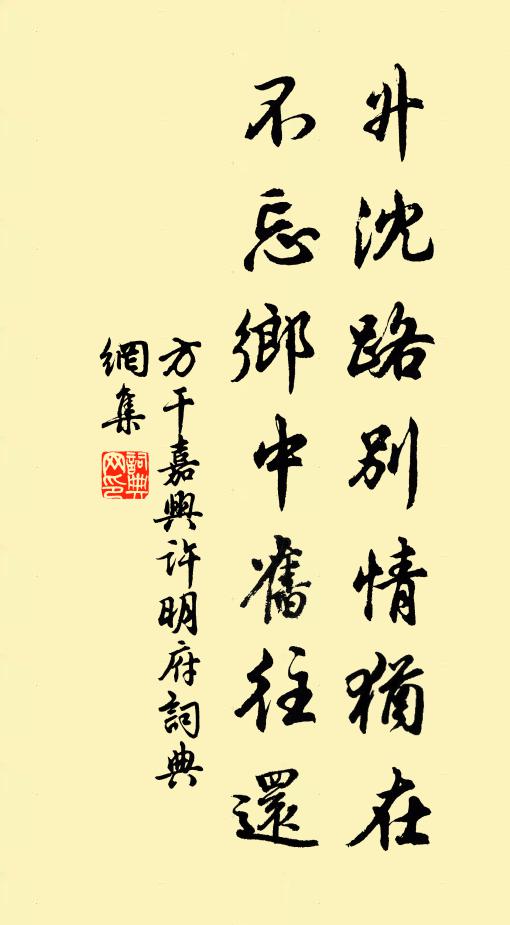 升沈路別情猶在
不忘鄉中舊往還
方干嘉興許明府詞典
網集
詞典網印